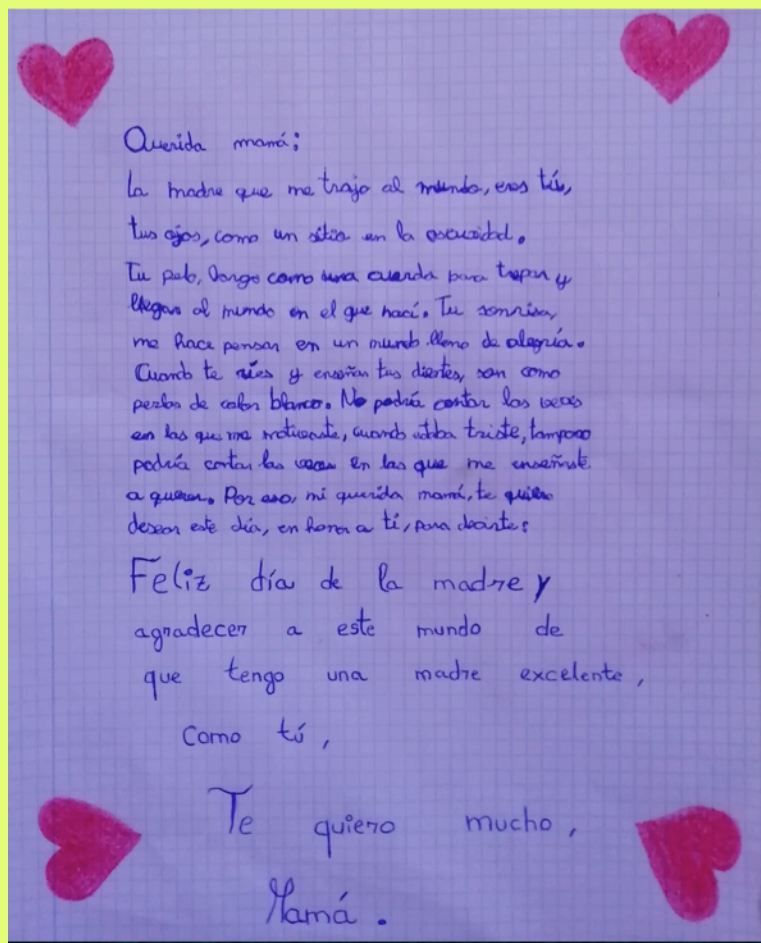 Querida mamá:
La madre que me trajo al mundo, eres tú,
tus ojos, como un sitio en la oscuridad.
Tu pelo, largo como una cuerda para trepar y
llegar al mundo en el que nací. Tu sonrisa,
me hace pensar en un mundo lleno de alegría.
Cuando te ríes y enseñas tus dientes, son como
perlas de color blanco. No podría contar las veces
en las que me motivaste, cuando estaba triste, tampoco
podría contar las veces en las que me enseñaste
a querer. Por eso, mi querida mamá, te quiero
desear este día, en honor a tí, para decirte:
Feliz día de la madre y
agradecer a este mundo de
que tengo una madre excelente,
como tú,
Te quiero mucho,
Mamá.